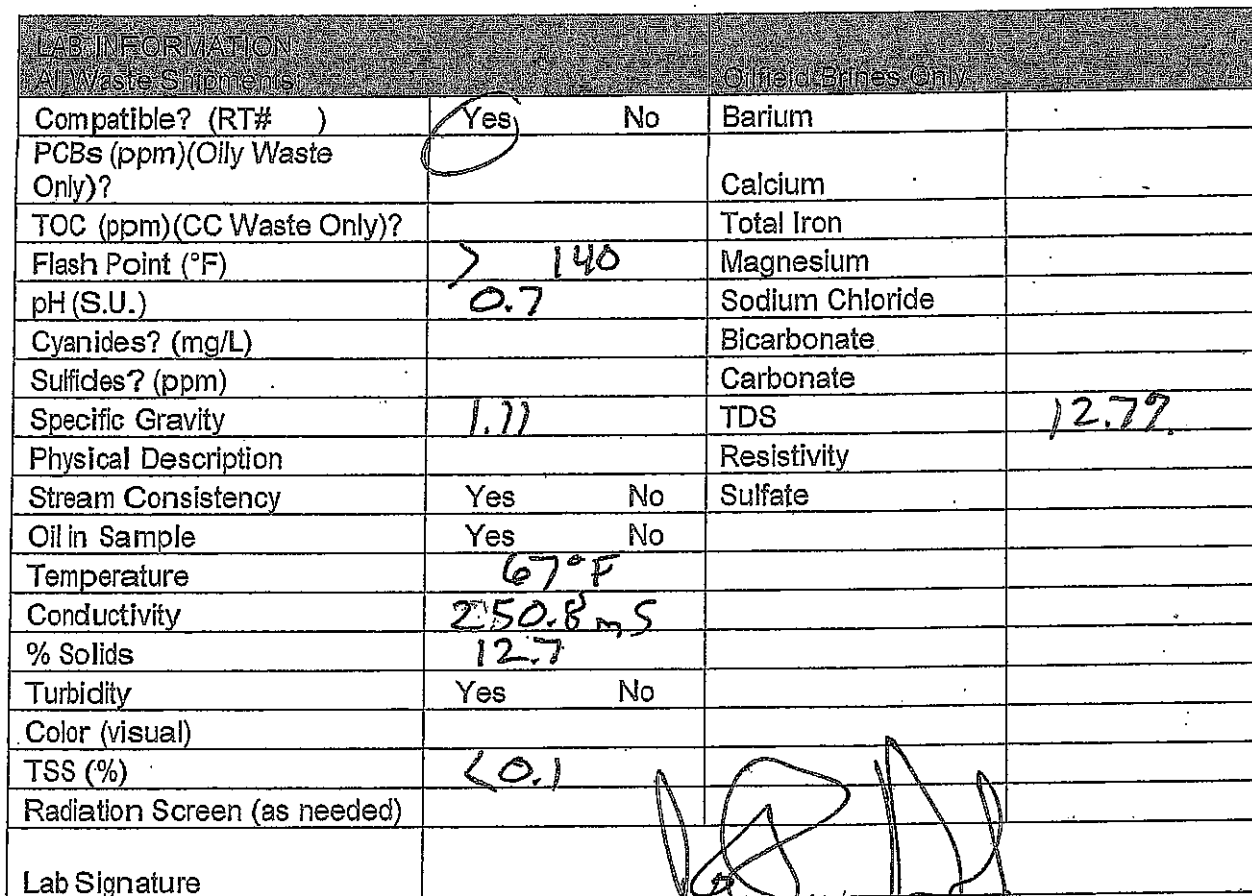 LAB INFORMATION
All Waste Shipments Oilfield Brines Only
Compatible? (RT# ) Yes No Barium
PCBs (ppm)(Oily Waste
Only)? Calcium
TOC (ppm)(CC Waste Only)? Total Iron
Flash Point (°F) > 140 Magnesium
pH (S.U.) 0.7 Sodium Chloride
Cyanides? (mg/L) Bicarbonate
Sulfides? (ppm) Carbonate
Specific Gravity 1.11 TDS
Physical Description Resistivity
Stream Consistency Yes No Sulfate
Oil in Sample Yes No
Temperature 67°F
Conductivity 250.8 mS
% Solids 12.7
Turbidity Yes No
Color (visual)
TSS (%) <0.1
Radiation Screen (as needed)
Lab Signature